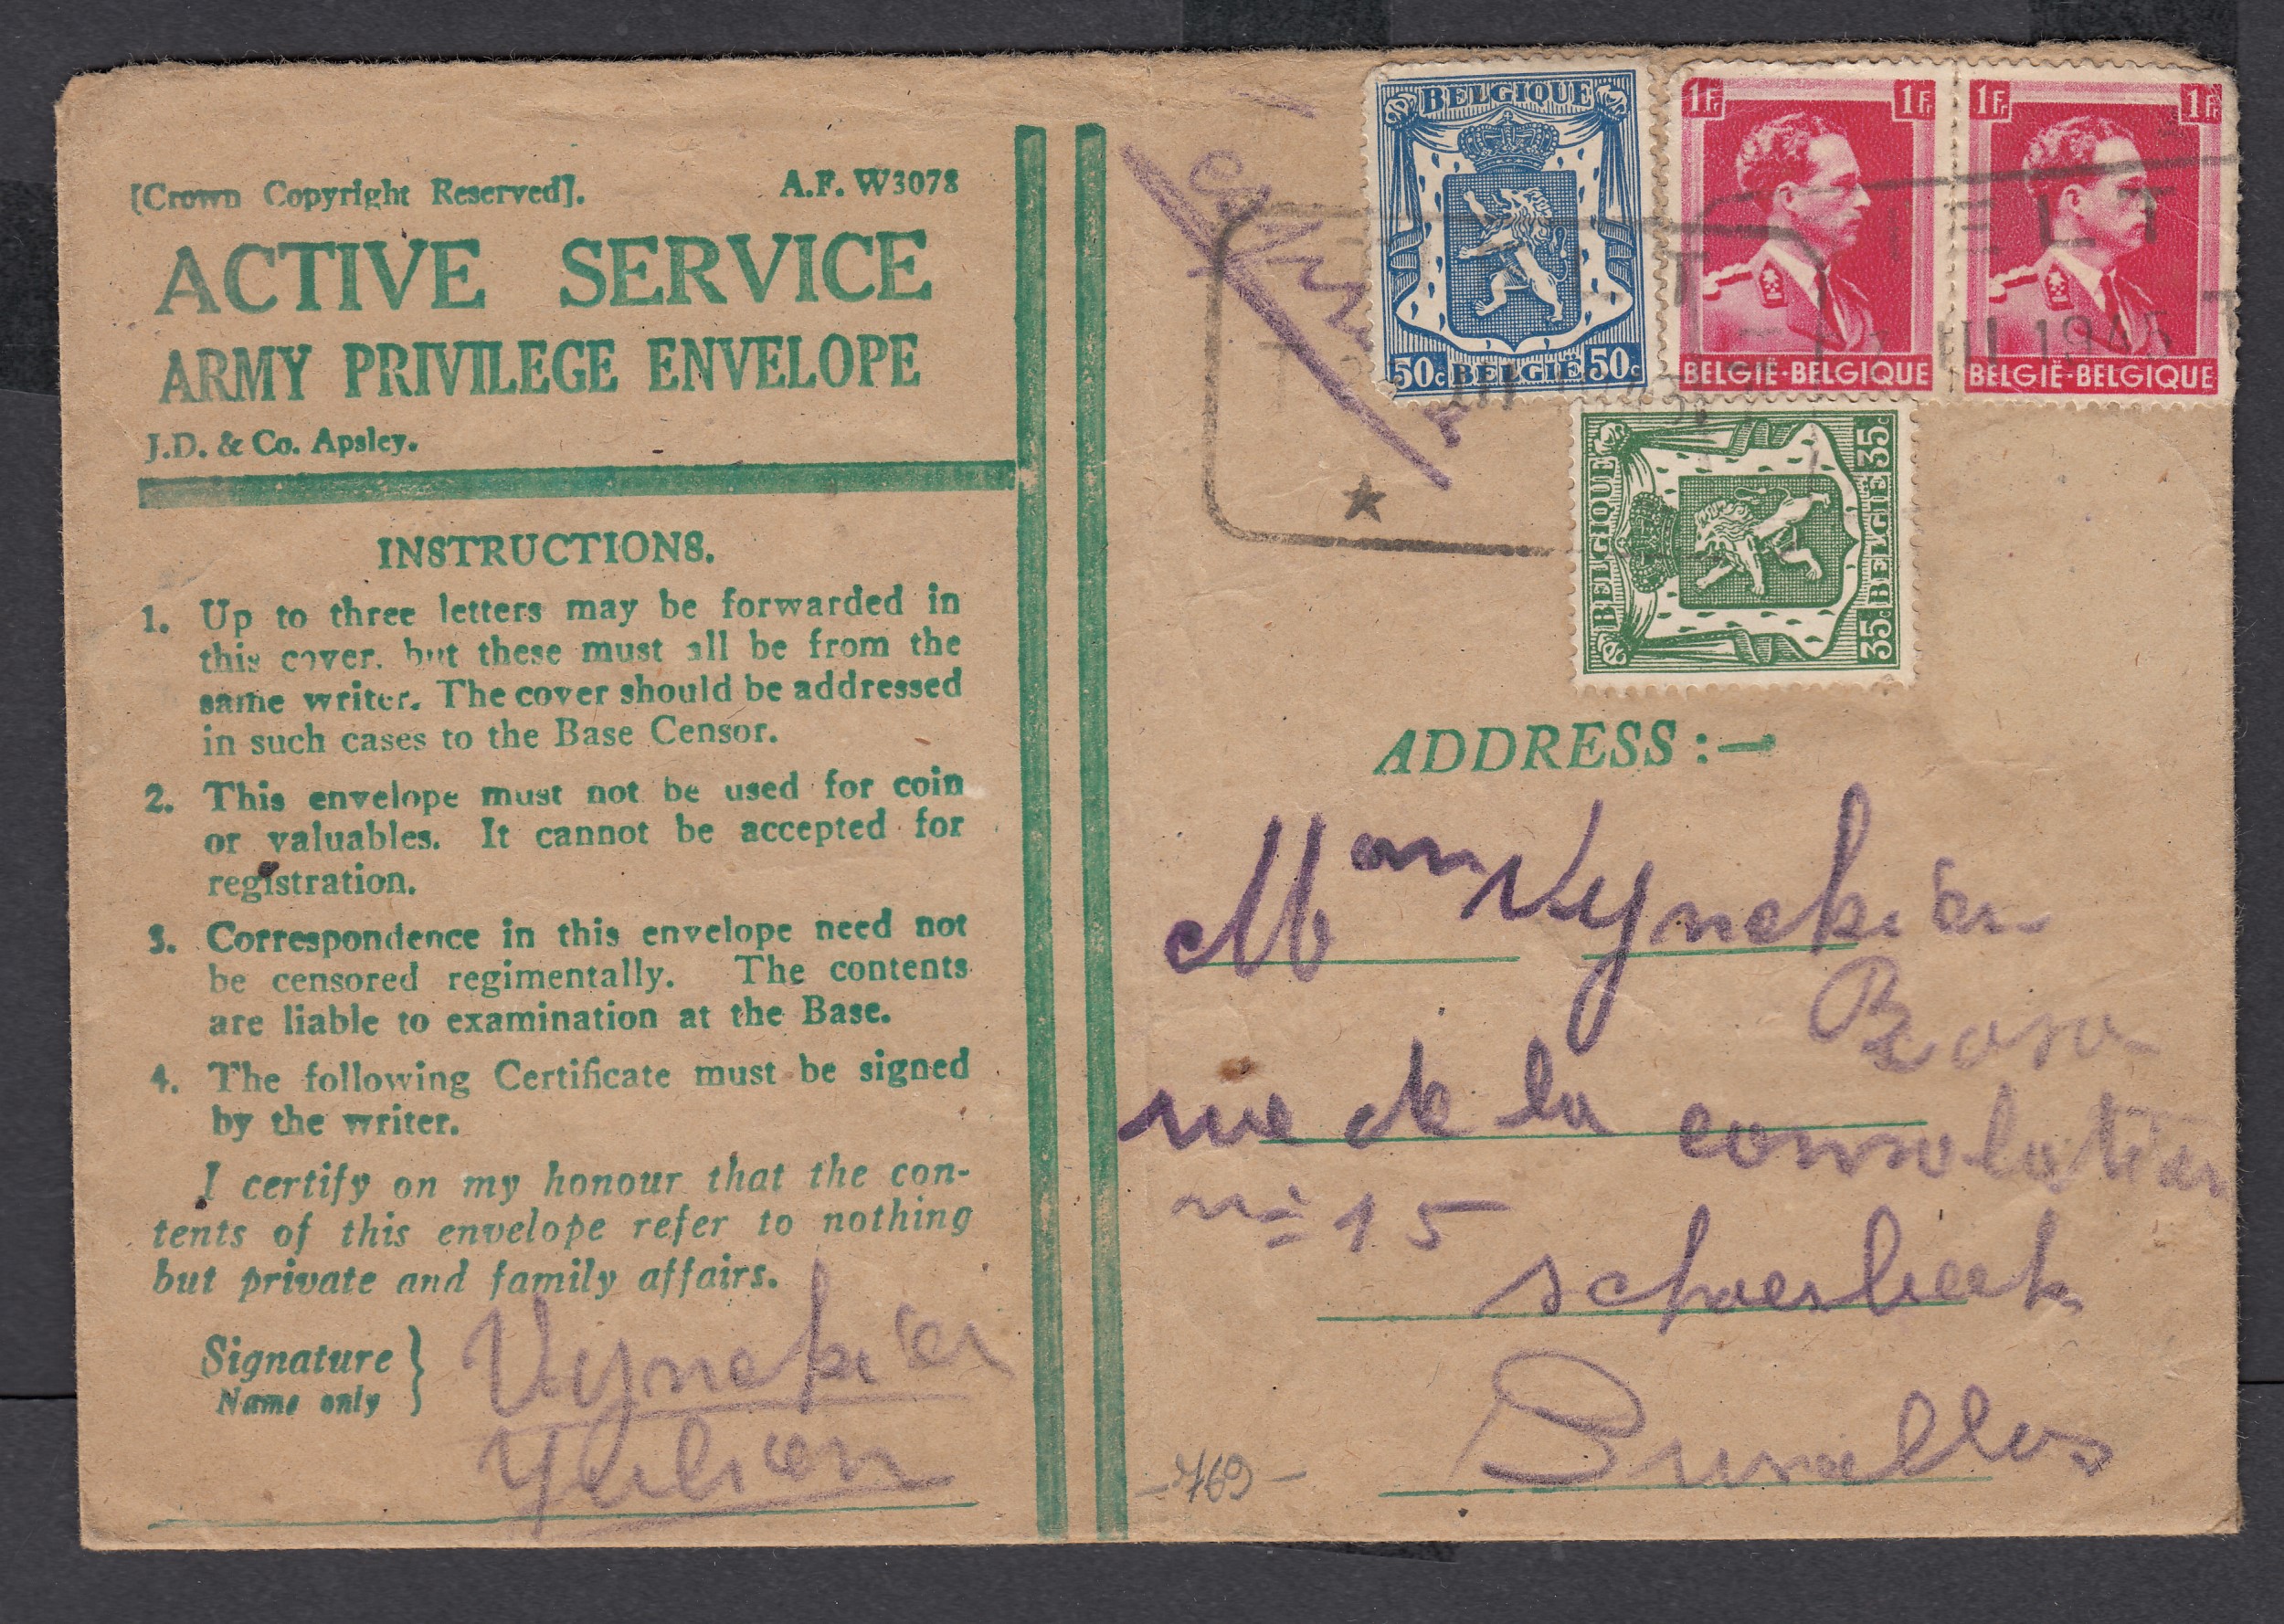 [Crown Copyright Reserved]. A.F. W3078
ACTIVE SERVICE
ARMY PRIVILEGE ENVELOPE
J.D. & Co. Apsley.
INSTRUCTIONS.
1. Up to three letters may be forwarded in
this cover, but these must all be from the
same writer. The cover should be addressed
in such cases to the Base Censor.
2. This envelope must not be used for coin
or valuables. It cannot be accepted for
registration.
3. Correspondence in this envelope need not
be censored regimentally. The contents
are liable to examination at the Base.
4. The following Certificate must be signed
by the writer.
I certify on my honour that the con-
tents of this envelope refer to nothing
but private and family affairs.
Signature }
Name only
Vynckier
BELGIQUE
50c BELGIË 50c
1Fr 1Fr
BELGIË-BELGIQUE
1Fr 1Fr
BELGIË-BELGIQUE
BELGIQUE
35c BELGIË 35c
IELT
III 1945
ADDRESS :—
Vynckier
rue de la consolation
nº 15
schaerbeek
Bruxelles
-769-